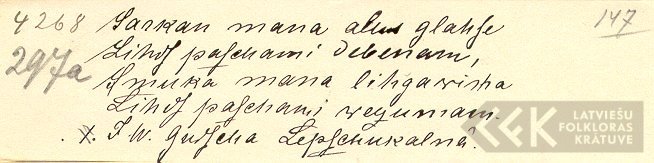 4268 Sarkan mana alus glahse 147
297a Lihds paschami dibenam,
Smuka mana lihgawiņa
Lihds paschami wezumam.
X. I. W. gudscha Lepschukalnā.
LATVIEŠU
FOLKLORAS
KRĀTUVE